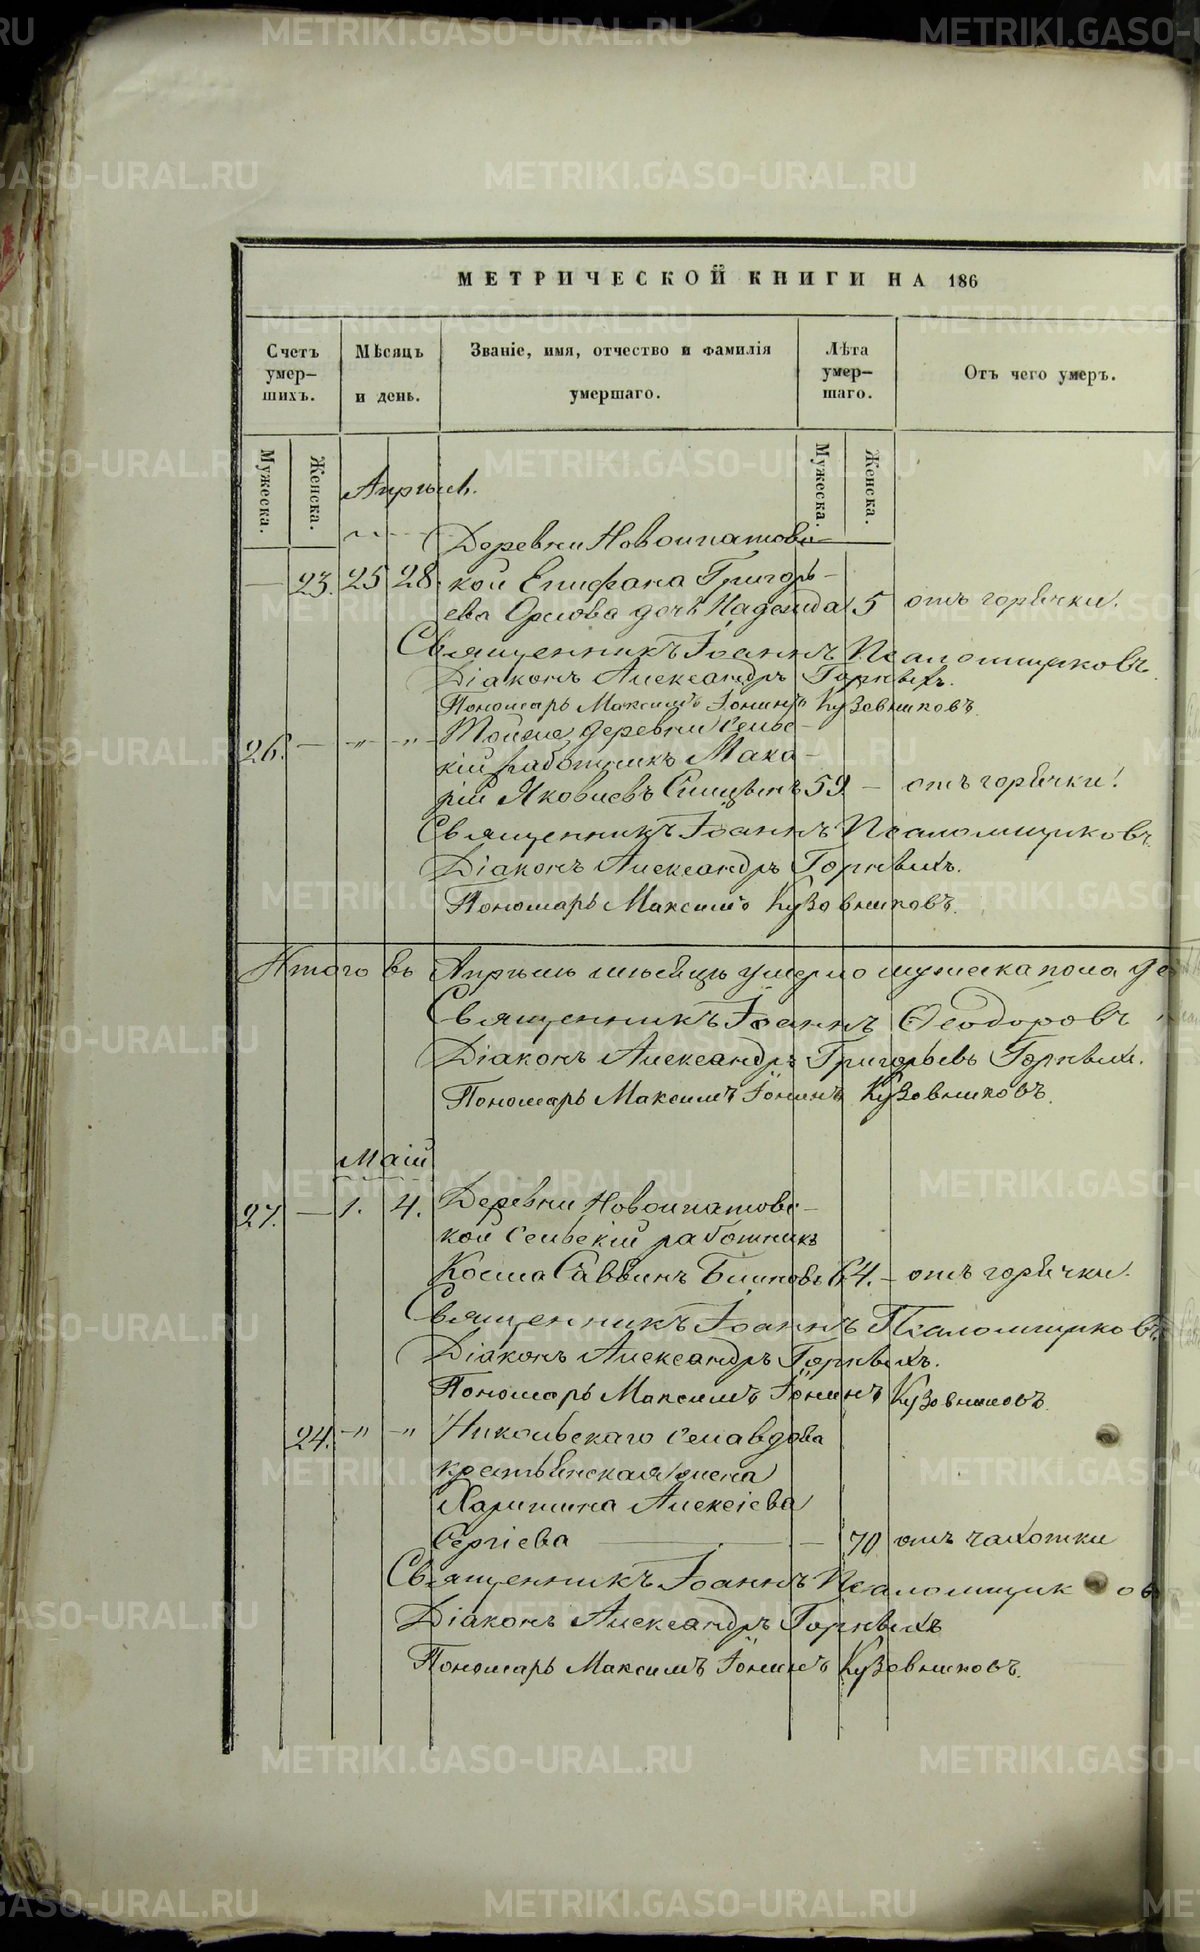 МЕТРИЧЕСКОЙ КНИГИ НА 186
Счетъ умер-шихъ.
Мѣсяцъ и день.
Званіе, имя, отчество и фамилія умершаго.
Лѣта умер-шаго.
Отъ чего умеръ.
Мужеска.
Женска.
Мужеска.
Женска.
Апрѣль.
Деревни Новоипатовс-
— 23. 25 28. кой Епифана Григорь-
ева Орлова дочь Надежда 5 отъ горячки.
Священникъ Іоаннъ Псаломщиковъ
Діаконъ Александръ Горныхъ.
Пономарь Максимъ Іонинъ Кузовниковъ
26. — " " Тойже деревни сельс-
кій работникъ Мака-
рій Яковлевъ Синцынъ 59 — отъ горячки.
Священникъ Іоаннъ Псаломщиковъ.
Діаконъ Александръ Горныхъ.
Пономарь Максимъ Кузовниковъ.
Итого въ Апрѣлѣ мѣсяцѣ умерло мужеска пола де
Священникъ Іоаннъ Ѳеодоровъ
Діаконъ Александръ Григорьевъ Горныхъ.
Пономарь Максимъ Іонинъ Кузовниковъ.
Маій
27. — 1. 4. Деревни Новоипатовс-
кой Сельскій работникъ
Косма Саввинъ 64. — отъ горячки.
Священникъ Іоаннъ Псаломщиковъ
Діаконъ Александръ Горныхъ.
Пономарь Максимъ Іонинъ Кузовниковъ
24. " " Никольскаго села вдова
крестьянская жена
Харитина Алексіева
Сергіева — 70 отъ чахотки
Священникъ Іоаннъ Псаломщиковъ
Діаконъ Александръ Горныхъ
Пономарь Максимъ Іонинъ Кузовниковъ.
METRIKI.GASO-URAL.RU